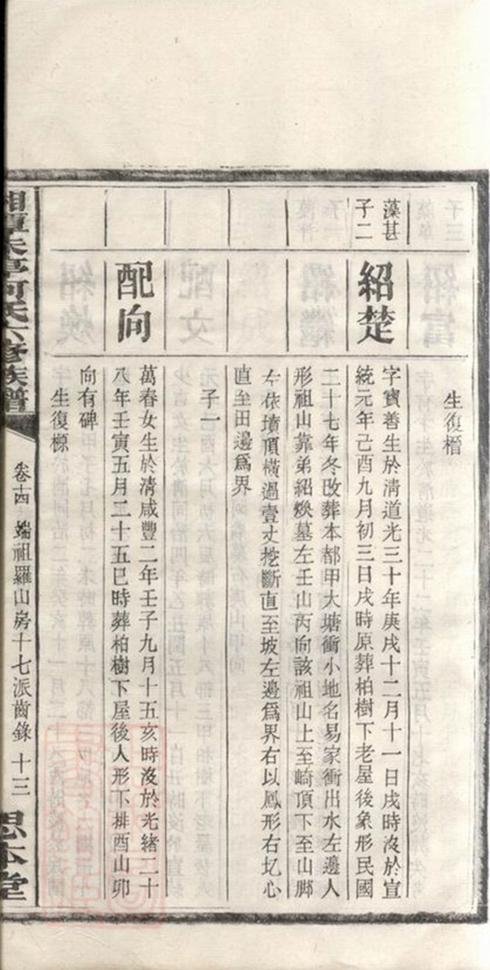 生復榗
藻甚
子二
紹楚
字寶善生於清道光三十年庚戌十二月十一日戌時沒於宣
統元年己酉九月初三日戌時原葬柏樹下老屋後象形民國
二十七年冬改葬本都甲大塘衝小地名易家衝出水左邊人
形祖山靠弟紹煥墓左壬山丙向該祖山上至崎頂下至山脚
左依墳頂橫過壹丈挖斷直至坡左邊爲界右以鳳形右圠心
直至田邊爲界
子一
配向
萬春女生於清咸豐二年壬子九月十五亥時沒於光緒二十
八年壬寅五月二十五巳時葬柏樹下屋後人形下排酉山卯
向有碑
生復標
湘潭朱亭何氏六修族譜
卷十四
端祖羅山房十七派齒錄
十三
思本堂